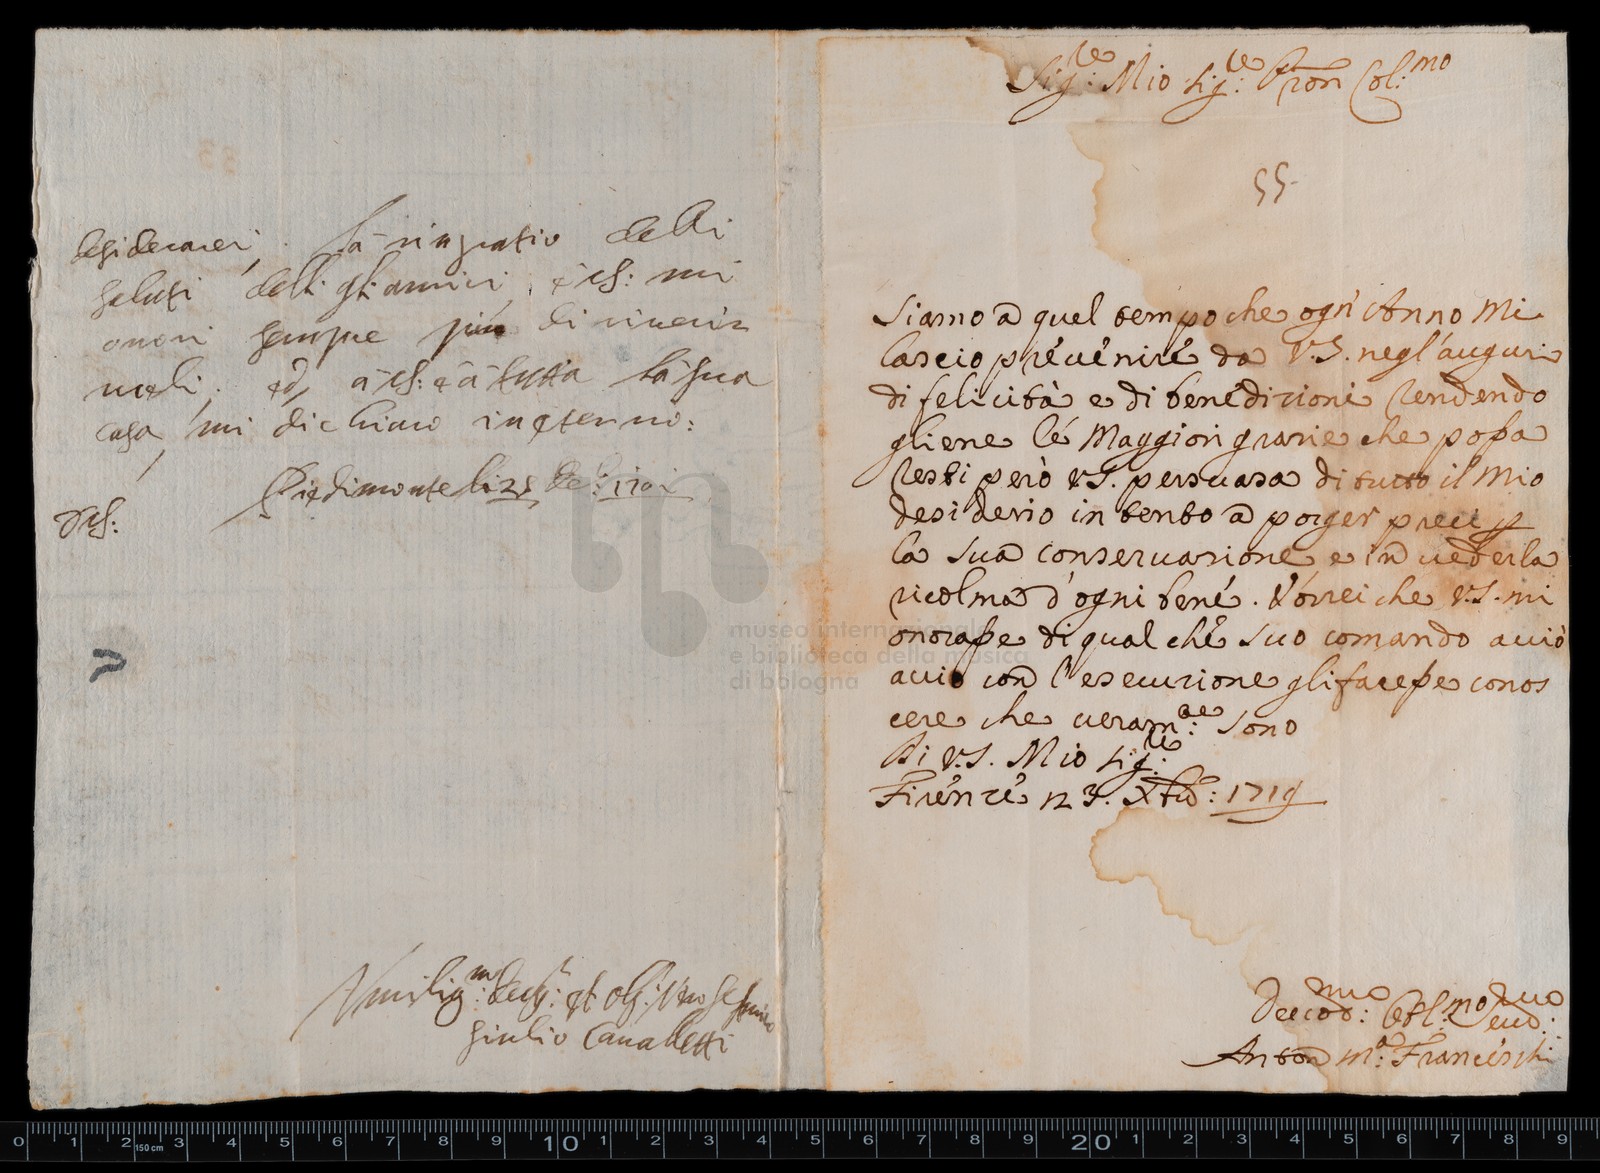 desiderarei, la ringratio delli
saluti delli gli amici, e VS: mi
onori sempre più di rineriz
meli. ed, a VS: e a tutta la sua
casa, mi dichiaro in eterno:
Piedimonte li 28 de: 1701
VS:
Umilis.m: Deu: et Obl: Vero Seruo
Giulio Cavalletti
Sig.re: Mio Sig.re: Pron Col:mo
55.
Siamo a quel tempo che ogn'Anno mi
lascio prevenire da V.S. negl'auguri
di felicità e di benedizioni rendendo
gliene le Maggiori grazie che possa
resti però V.S. persuasa di tutto il mio
desiderio intento a porger preci p
la sua conservazione e in vederla
ricolma d'ogni bene. Vorrei che V.S. mi
onorasse di qualche suo comando acciò
acciò con l'esecuzione gli facesse conos
cere che veram:te sono
Di V.S. Mio Sig:re
Firenze 23. Xbre: 1719
Deuo:mo Obl:mo Seru:
Anton M:a Franceschi
museo internazionale
e biblioteca della musica
di bologna
0 1 2 3 4 5 6 7 8 9 10 1 2 3 4 5 6 7 8 9 20 1 2 3 4 5 6 7 8 9
150 cm